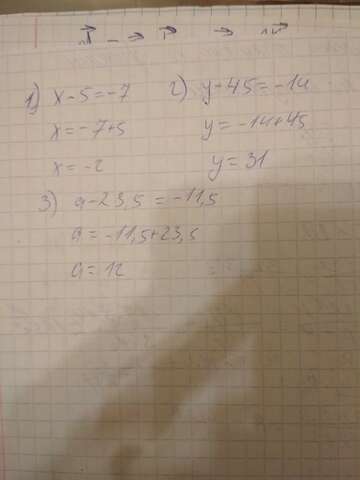 1) x-5=-7
x=-7+5
x=-2
2) y-45=-14
y=-14+45
y=31
3) a-23,5=-11,5
a=-11,5+23,5
a=12